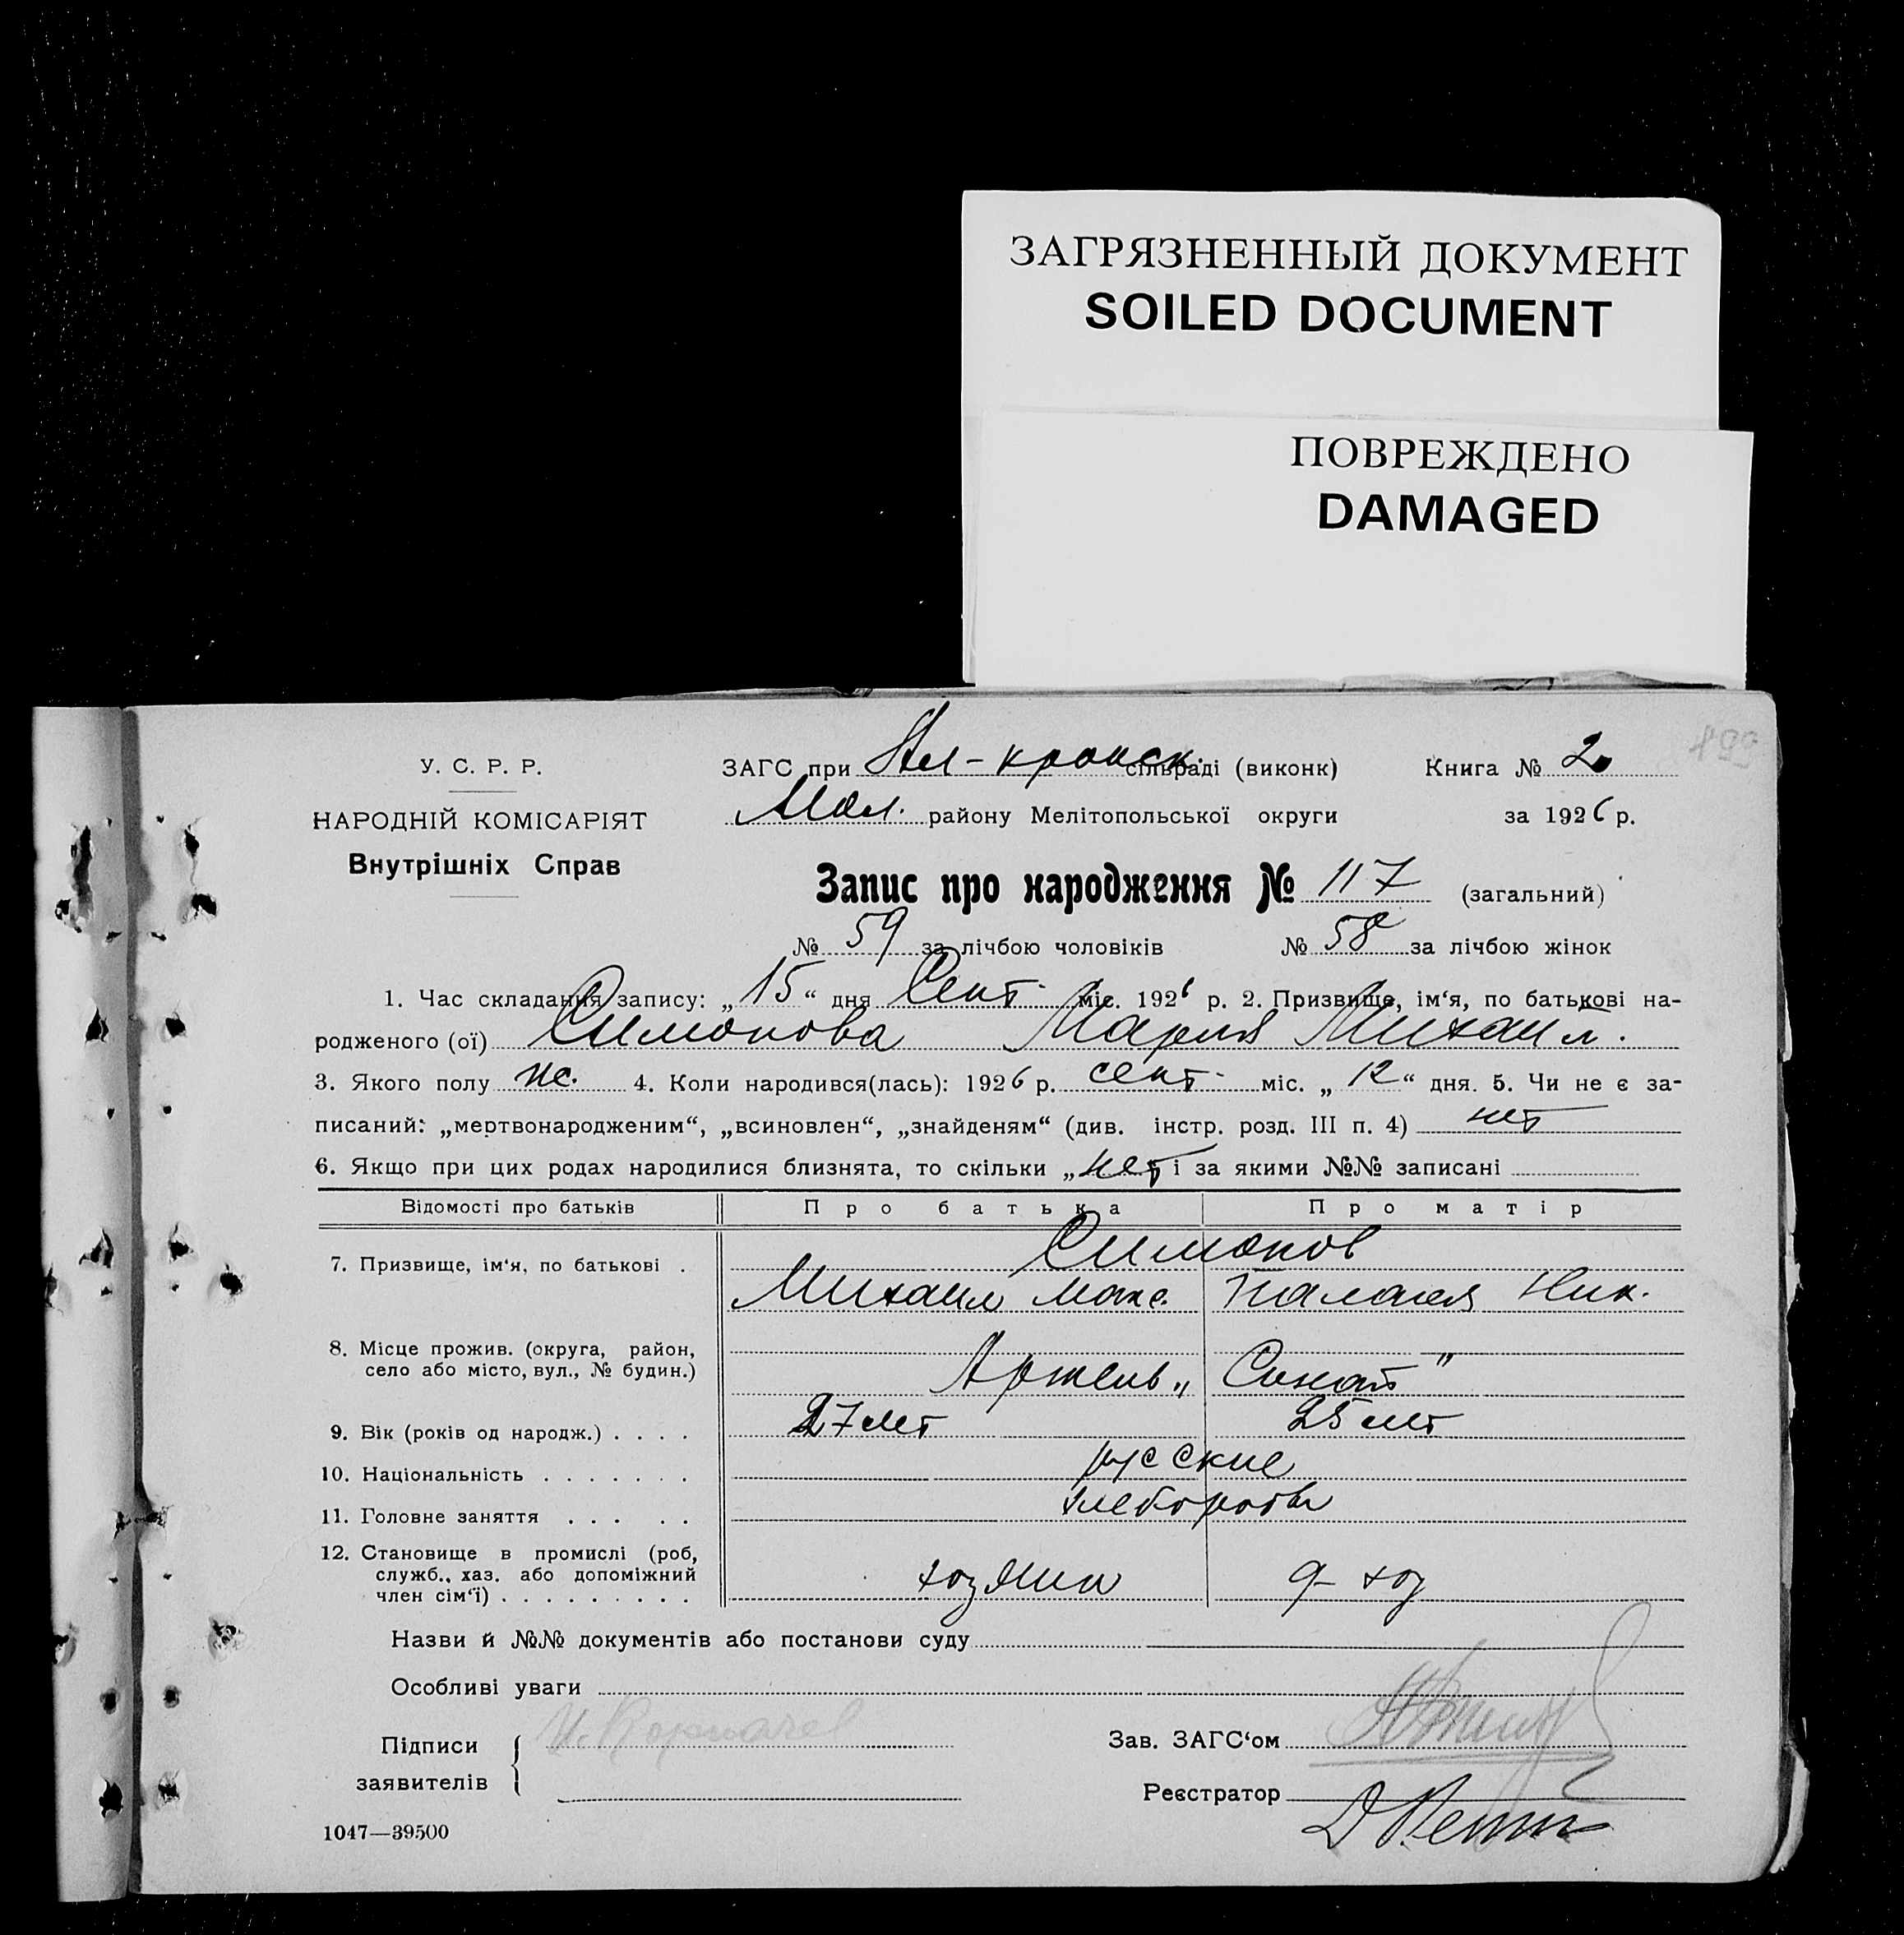 ЗАГРЯЗНЕННЫЙ ДОКУМЕНТ
SOILED DOCUMENT
ПОВРЕЖДЕНО
DAMAGED
У. С. Р. Р.
НАРОДНІЙ КОМІСАРІЯТ
Внутрішніх Справ
ЗАГС при сільраді (виконк)
Книга № 2
Мол. району Мелітопольської округи
за 1926 р.
Запис про народження № 117 (загальний)
№ 59 за лічбою чоловіків № 58 за лічбою жінок
1. Час складання запису: „15“ дня Сент. міс. 1926 р. 2. Призвище, ім‘я, по батькові на-
родженого (ої) Симонова Мария Михаил.
3. Якого полу ж. 4. Коли народився(лась): 1926 р. сент. міс. „12“ дня. 5. Чи не є за-
писаний: „мертвонародженим“, „всиновлен“, „знайденям“ (див. інстр. розд. III п. 4) нет
6. Якщо при цих родах народилися близнята, то скільки „нет і за якими №№ записані
Відомості про батьків Про батька Про матір
7. Призвище, ім‘я, по батькові . Симонов
Михаил Макс. Палагея Ник.
8. Місце прожив. (округа, район,
село або місто, вул., № будин.) Артель „ Синат "
9. Вік (років од народж.) . . . . 27 лет 25 лет
10. Національність . . . . . . . русские
11. Головне заняття . . . . . хлеборобы
12. Становище в промислі (роб,
служб., хаз. або допоміжний
член сім‘ї) . . . . . . . . . хозяин
Назви й №№ документів або постанови суду
Особливі уваги
Підписи
заявителів
Зав. ЗАГС‘ом
Реєстратор
1047—39500